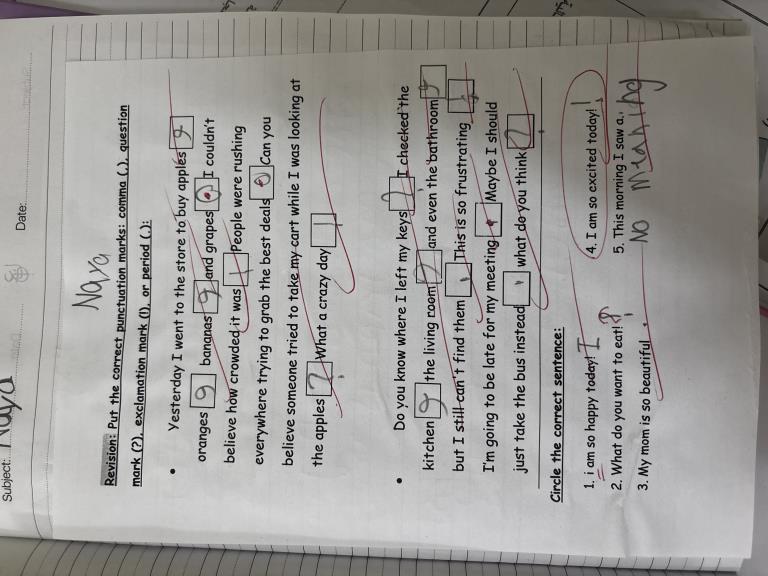 Subject: Naya
Date:
Naya
Revision: Put the correct punctuation marks: comma (,), question
mark (?), exclamation mark (!), or period (.):
• Yesterday I went to the store to buy apples ,
oranges , bananas , and grapes . I couldn't
believe how crowded it was ! People were rushing
everywhere trying to grab the best deals . Can you
believe someone tried to take my cart while I was looking at
the apples ? What a crazy day !
• Do you know where I left my keys ? I checked the
kitchen , the living room , and even the bathroom ,
but I still can't find them . This is so frustrating !
I'm going to be late for my meeting . Maybe I should
just take the bus instead , what do you think ?
Circle the correct sentence:
1. i am so happy today! I
2. What do you want to eat! ?
3. My mom is so beautiful .
4. I am so excited today!
5. This morning I saw a.
No meaning